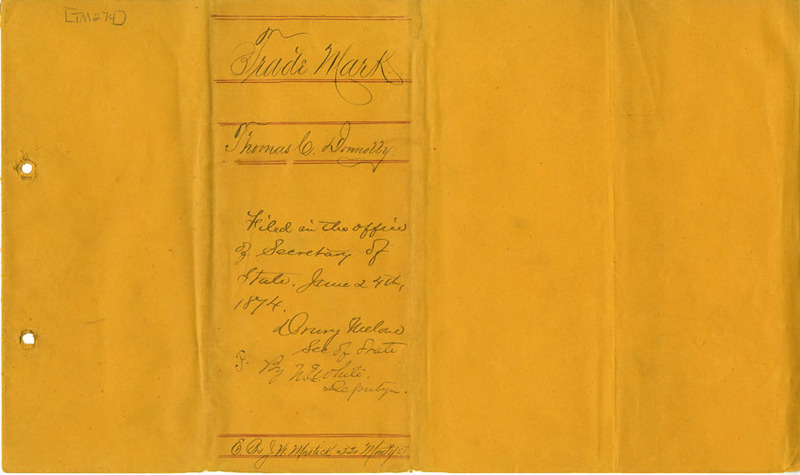 [TM274]
Trade Mark
Thomas C. Donnolly.
Filed in the office
of Secretary of
State. June 24th,
1874.
Drury Melone
Sec of State
By W.E. White.
Deputy.
J. W. Mastick 520 Montg St